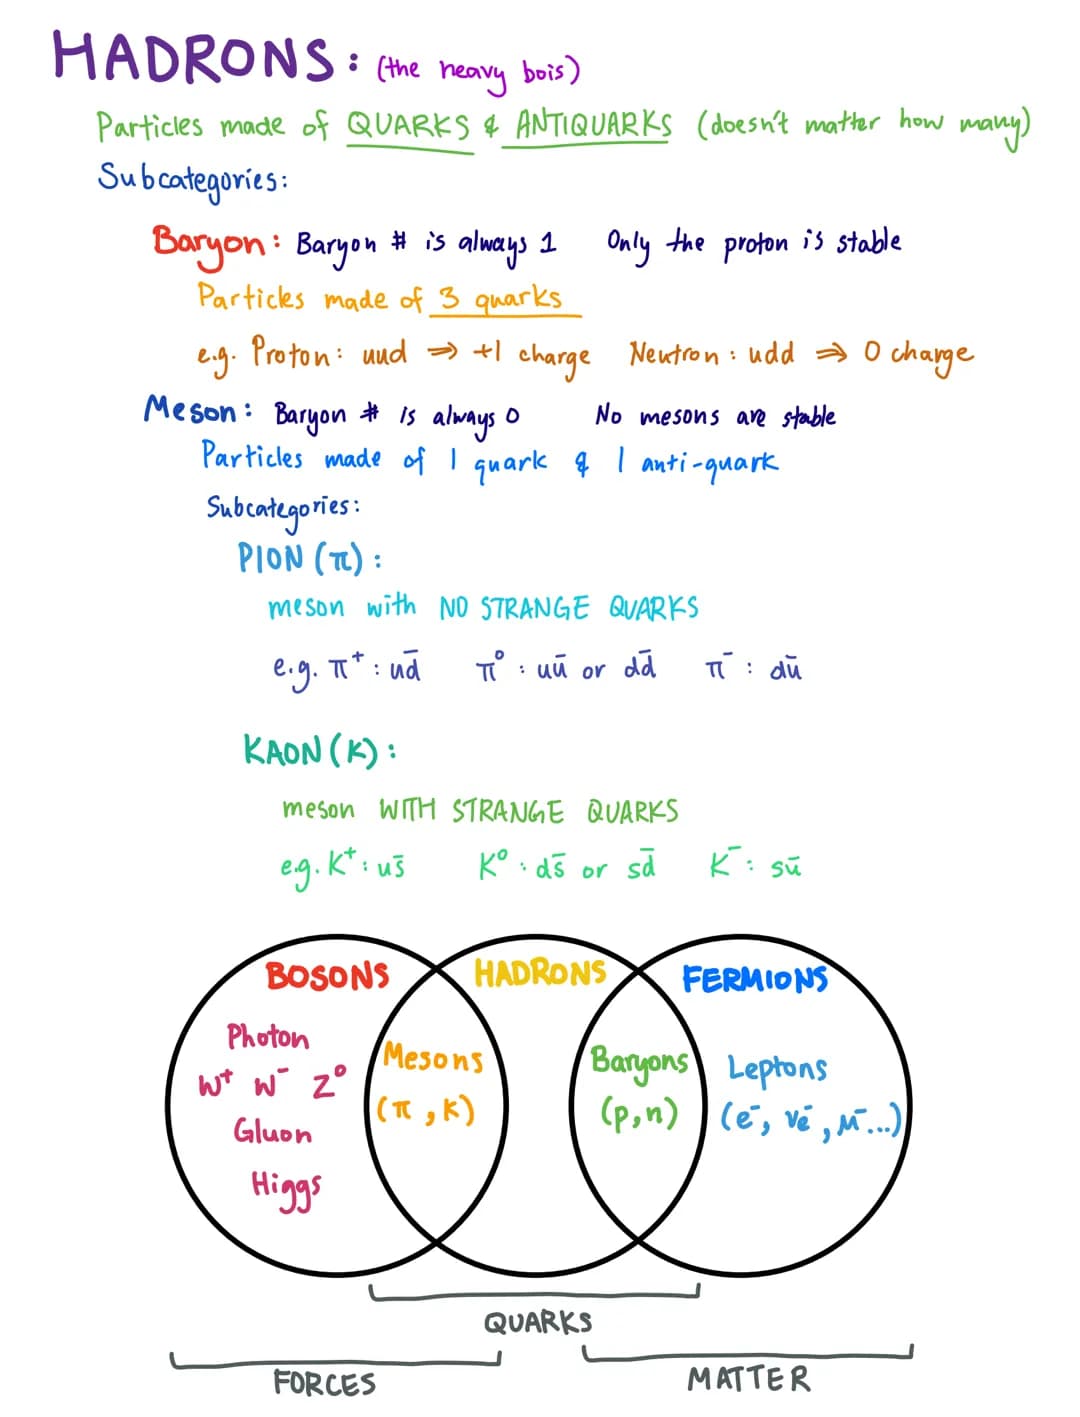 HADRONS: (the heavy bois)
Particles made of QUARKS & ANTIQUARKS (doesn't matter how many)
Subcategories:
Baryon: Baryon # is always 1 Only the proton is stable
Particles made of 3 quarks
e.g. Proton: uud ⇒ +1 charge Neutron: udd ⇒ 0 charge
Meson: Baryon # is always 0 No mesons are stable
Particles made of 1 quark & 1 anti-quark
Subcategories:
PION (π):
meson with NO STRANGE QUARKS
e.g. π⁺: ud̄ π⁰: uū or dd̄ π⁻: dū
KAON (K):
meson WITH STRANGE QUARKS
e.g. K⁺: us̄ K⁰: ds̄ or sd̄ K⁻: sū
BOSONS HADRONS FERMIONS
Photon
W⁺ W⁻ Z⁰
Gluon
Higgs
Mesons
(π, K)
Baryons
(p, n)
Leptons
(e⁻, νe⁻, μ⁻...)
QUARKS
FORCES
MATTER